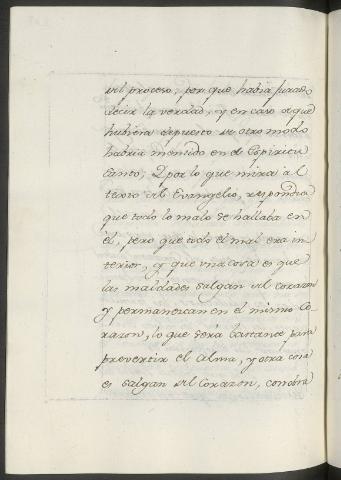 del proceso, por que havia jurado
decir la verdad, y en caso de que
hubiera depuesto de otro modo
habria mentido en el Espiritu
Santo, Y por lo que mira al
texto del Evangelio, respondia
que todo lo malo se hallaba en
él, pero que todo el mal era in-
terior, y que una cosa es que
las maldades salgan del corazon
y permanezcan en el mismo Co-
razon, lo que seria bastante para
prevertir el Alma, y otra cosa
es salgan del Corazon, con obra